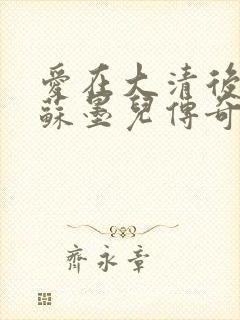 愛在大清後
蘇墨兒傳奇
齊永章